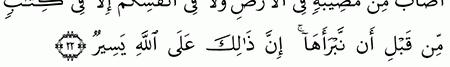 أَصَابَ مِن مُّصِيبَةٍ فِى ٱلْأَرْضِ وَلَا فِىٓ أَنفُسِكُمْ إِلَّا فِى كِتَـٰبٍ
مِّن قَبْلِ أَن نَّبْرَأَهَآ ۚ إِنَّ ذَٰلِكَ عَلَى ٱللَّهِ يَسِيرٌ ﴿٢٢﴾